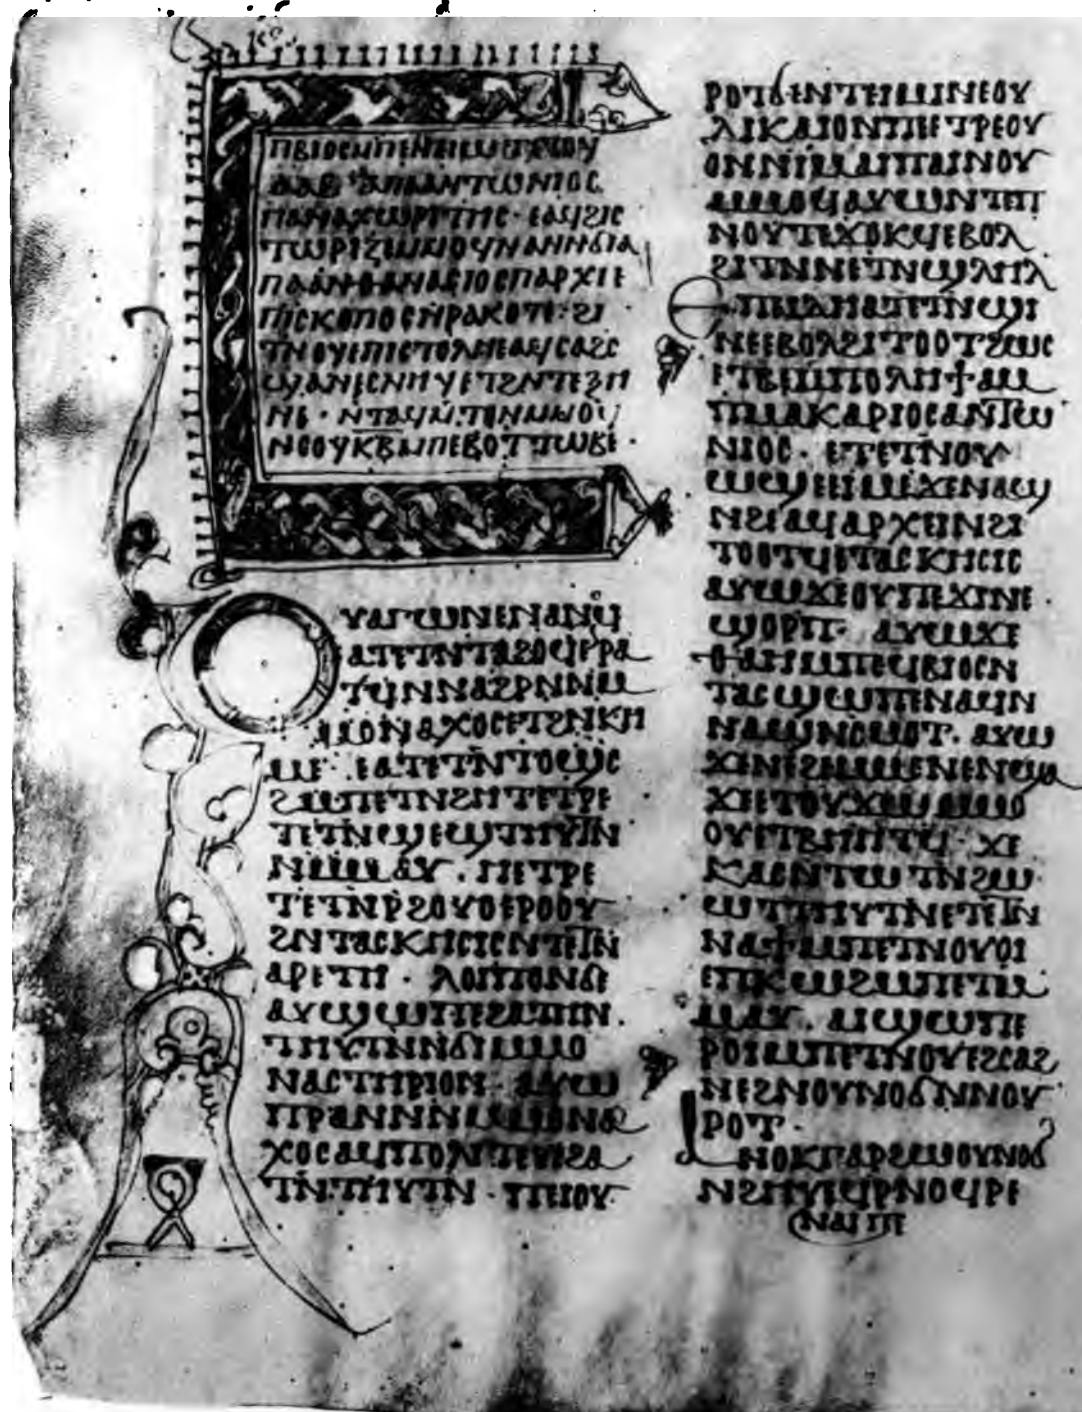 ⲡⲃⲓⲟⲥⲙⲡⲉⲛⲉⲓⲱⲧⲉⲧⲟⲩ
ⲁⲁⲃ ⲁⲡⲁⲁⲛⲧⲱⲛⲓⲟⲥ
ⲡⲁⲛⲁⲭⲱⲣⲓⲧⲏⲥ· ⲉⲁϥϩⲓⲥ
ⲧⲱⲣⲓⲍⲉⲙⲙⲟϥⲛⲁⲛⲛϭⲓⲁ
ⲡⲁⲁⲑⲁⲛⲁⲥⲓⲟⲥⲡⲁⲣⲭⲓⲉ
ⲡⲓⲥⲕⲟⲡⲟⲥⲛⲣⲁⲕⲟⲧⲉ· ϩⲓ
ⲧⲛⲟⲩⲉⲡⲓⲥⲧⲟⲗⲏⲉⲁϥⲥⲁϩⲥ
ϣⲁⲛⲉⲥⲛⲏⲩⲉⲧϩⲛⲧⲉϩⲏ
ⲛⲉ· ⲛⲧⲁϥⲙⲧⲟⲛⲙⲙⲟϥ
ⲛⲥⲟⲩⲕⲃⲙⲡⲉⲃⲟⲧⲧⲱⲃⲉ·
ⲟⲩⲁⲅⲱⲛⲉⲛⲁⲛⲟⲩϥ
ⲁⲧⲉⲧⲛⲧⲁϩⲟϥⲉⲣⲁ
ⲧϥⲛⲛⲁϩⲣⲛⲛⲙ
ⲙⲟⲛⲁⲭⲟⲥⲉⲧϩⲛⲕⲏ
ⲙⲉ ⲉⲁⲧⲉⲧⲛⲧⲟϣⲥ
ϩⲙⲡⲉⲧⲛϩⲏⲧⲉⲧⲣⲉ
ⲧⲉⲧⲛϣⲉϣⲧⲏⲩⲧⲛ
ⲛⲙⲙⲁⲩ· ⲏⲉⲧⲣⲉ
ⲧⲉⲧⲛⲣϩⲟⲩⲟⲉⲣⲟⲟⲩ
ϩⲛⲧⲁⲥⲕⲏⲥⲓⲥⲛⲧⲉⲧⲛ
ⲁⲣⲉⲧⲏ· ⲗⲟⲓⲡⲟⲛϭⲉ
ⲁⲩϣⲱⲡⲉϩⲁⲧⲛ
ⲧⲏⲩⲧⲛⲛϭⲓⲙⲙⲟ
ⲛⲁⲥⲧⲏⲣⲓⲟⲛ· ⲁⲩⲱ
ⲡⲣⲁⲛⲛⲙⲙⲟⲛⲁ
ⲭⲟⲥⲁϥⲡⲟⲗⲓⲧⲉⲩⲉϩⲁ
ⲧⲛⲧⲏⲩⲧⲛ· ⲡⲉⲓⲟⲩ
ⲣⲟⲧϭⲉⲛⲧⲉⲓⲙⲓⲛⲉⲟⲩ
ⲇⲓⲕⲁⲓⲟⲛⲡⲉⲧⲣⲉⲟⲩ
ⲟⲛⲛⲓⲙⲁⲓⲡⲁⲓⲛⲟⲩ
ⲙⲙⲟϥⲁⲩⲱⲛⲧⲉⲡ
ⲛⲟⲩⲧⲉϫⲟⲕϥⲉⲃⲟⲗ
ϩⲓⲧⲛⲛⲉⲧⲛϣⲗⲏⲗ
ⲉⲡⲙⲁⲇⲉⲁⲧⲉⲧⲛϣⲓ
ⲛⲉⲉⲃⲟⲗϩⲓⲧⲟⲟⲧϩⲱⲥ
ⲉⲧⲃⲉⲙⲡⲟⲗⲏϯⲁⲙ
ⲡⲙⲁⲕⲁⲣⲓⲟⲥⲁⲛⲧⲱ
ⲛⲓⲟⲥ· ⲉⲧⲉⲧⲛⲟⲩ
ⲱϣⲉⲉⲓⲙⲉϫⲉⲛⲁϣ
ⲛϩⲉⲁϥⲁⲣⲭⲉⲓⲛϩⲓ
ⲧⲟⲟⲧϥⲉⲧⲁⲥⲕⲏⲥⲓⲥ
ⲁⲩⲱϫⲉⲟⲩⲡⲉϫⲓⲛⲉ
ϣⲟⲣⲡ· ⲁⲩⲱϫⲉ
ⲑⲁⲏⲙⲡⲉϥⲃⲓⲟⲥⲛ
ⲧⲁⲥϣⲱⲡⲉⲛⲁϥⲛ
ⲛⲁϣⲛⲥⲙⲟⲧ· ⲁⲩⲱ
ϫⲉⲛⲉϩⲉⲛⲙⲉⲛⲉⲛϣⲁ
ϫⲉⲉⲧⲟⲩϫⲱⲙⲙⲟ
ⲟⲩⲉⲧⲃⲏⲏⲧϥ· ϫⲉ
ⲕⲁⲥⲛⲧⲱⲧⲛϩⲱ
ⲱⲧⲧⲏⲩⲧⲛⲉⲧⲉⲧⲛ
ⲛⲁϯⲙⲡⲉⲧⲛⲟⲩⲟⲓ
ⲉⲡⲕⲱϩⲙⲡⲉⲧⲙ
ⲙⲁⲩ· ⲁⲓϣⲱⲡⲉ
ⲣⲟⲓⲙⲡⲉⲧⲛⲟⲩⲉϩⲥⲁϩ
ⲛⲉϩⲛⲟⲩⲛⲟϭⲛⲛⲟⲩ
ⲣⲟⲧ·
ⲁⲛⲟⲕⲅⲁⲣϩⲱⲟⲩⲛⲟϭ
ⲛϩⲏⲩⲉϥⲣⲛⲟϥⲣⲉ
ⲛⲁⲓⲡⲉ